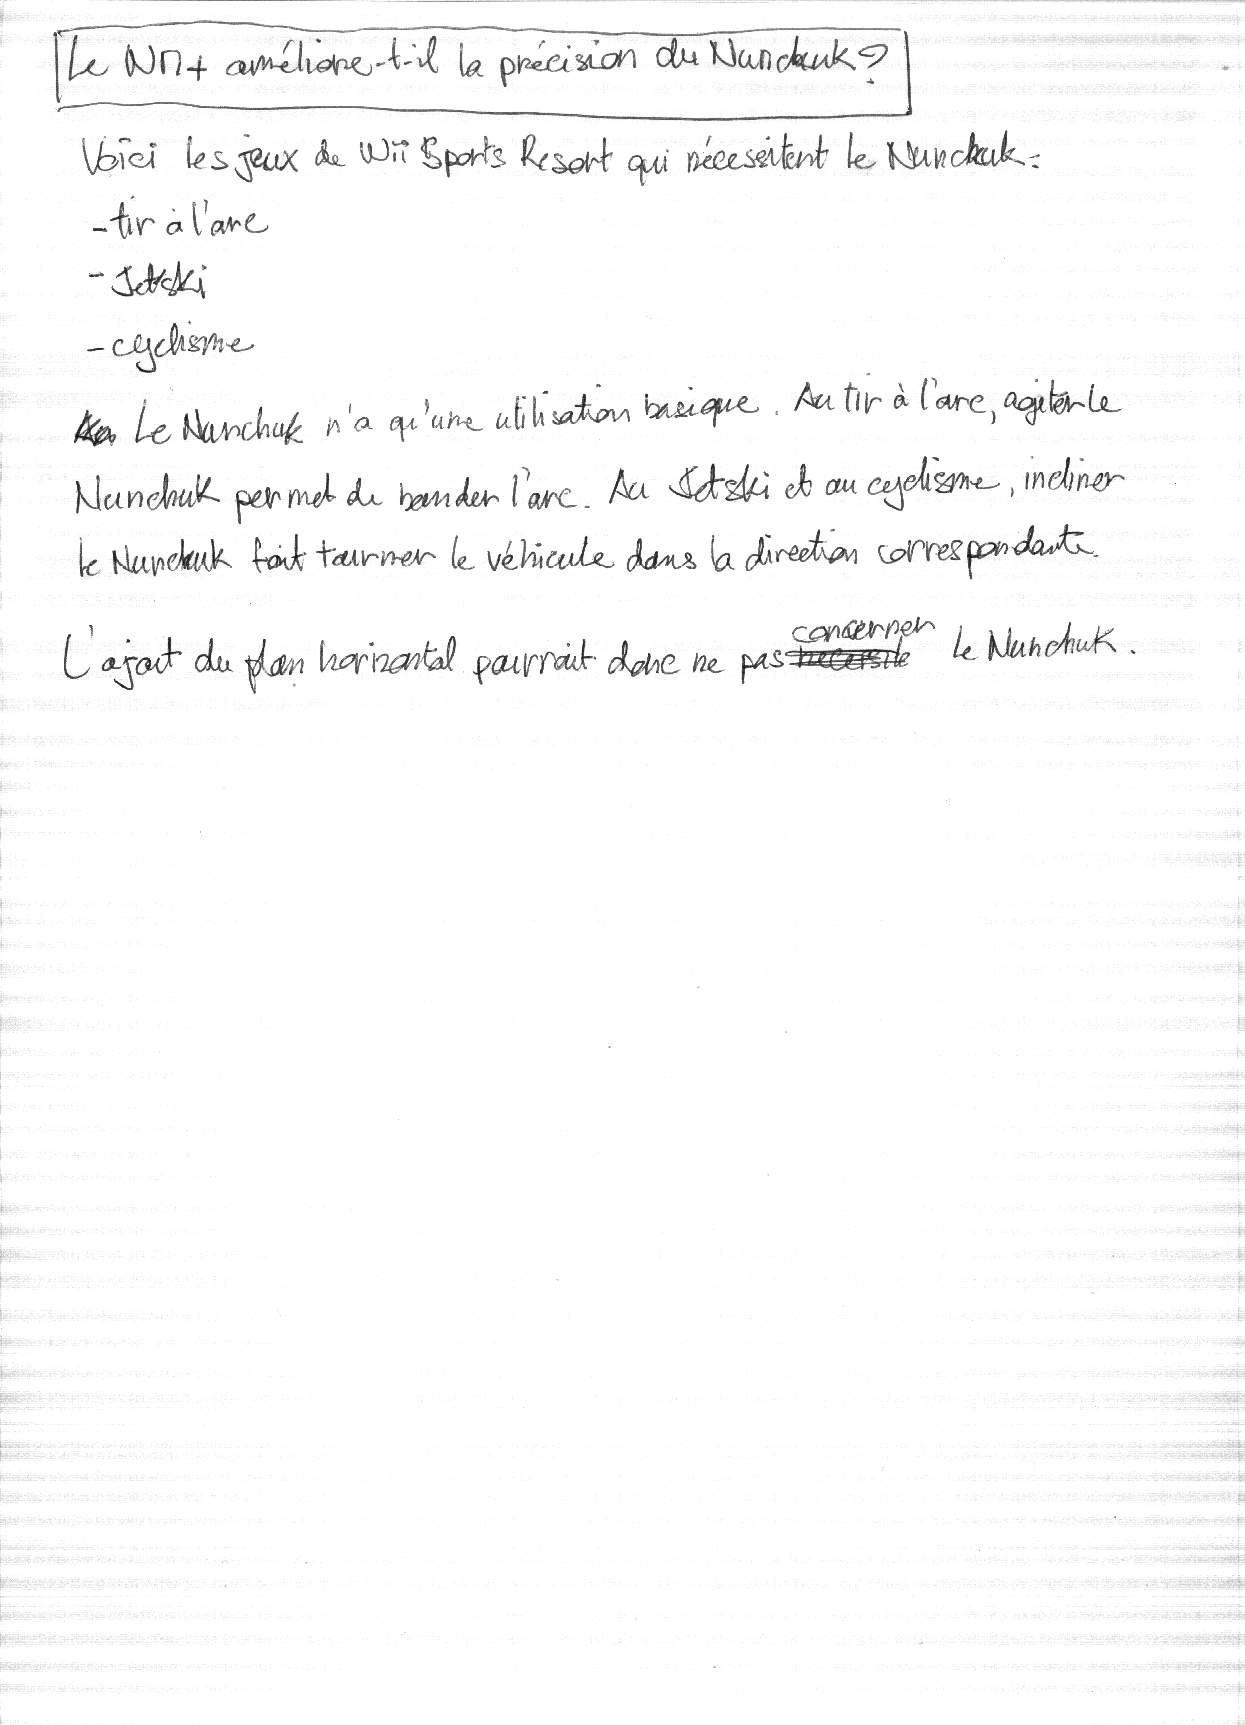 Le WM+ améliore-t-il la précision du Nunchuk?
Voici les jeux de Wii Sports Resort qui nécessitent le Nunchuk:
- tir à l'arc
- Jetski
- cyclisme
Le Nunchuk n'a qu'une utilisation basique. Au tir à l'arc, agiter le
Nunchuk permet de bander l'arc. Au Jetski et au cyclisme, incliner
le Nunchuk fait tourner le véhicule dans la direction correspondante.
L'ajout du plan horizontal pourrait donc ne pas concerner le Nunchuk.